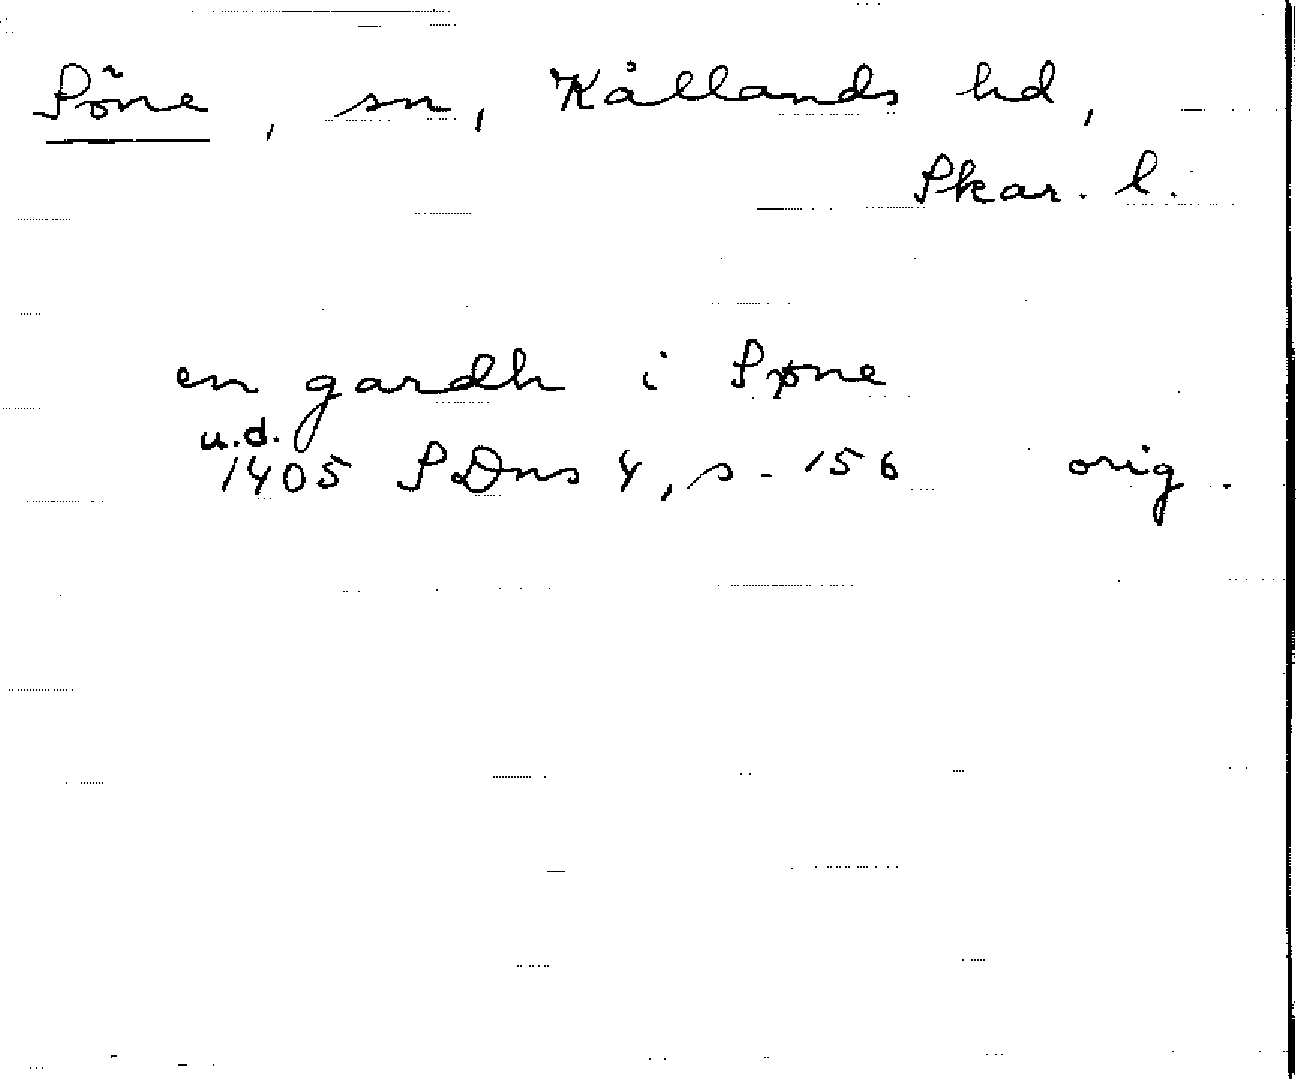 Söne, sn, Kållands hd,
Skar. l.
en gardh i Søne
u.d.
1405 SDns 4, s. 156 orig.